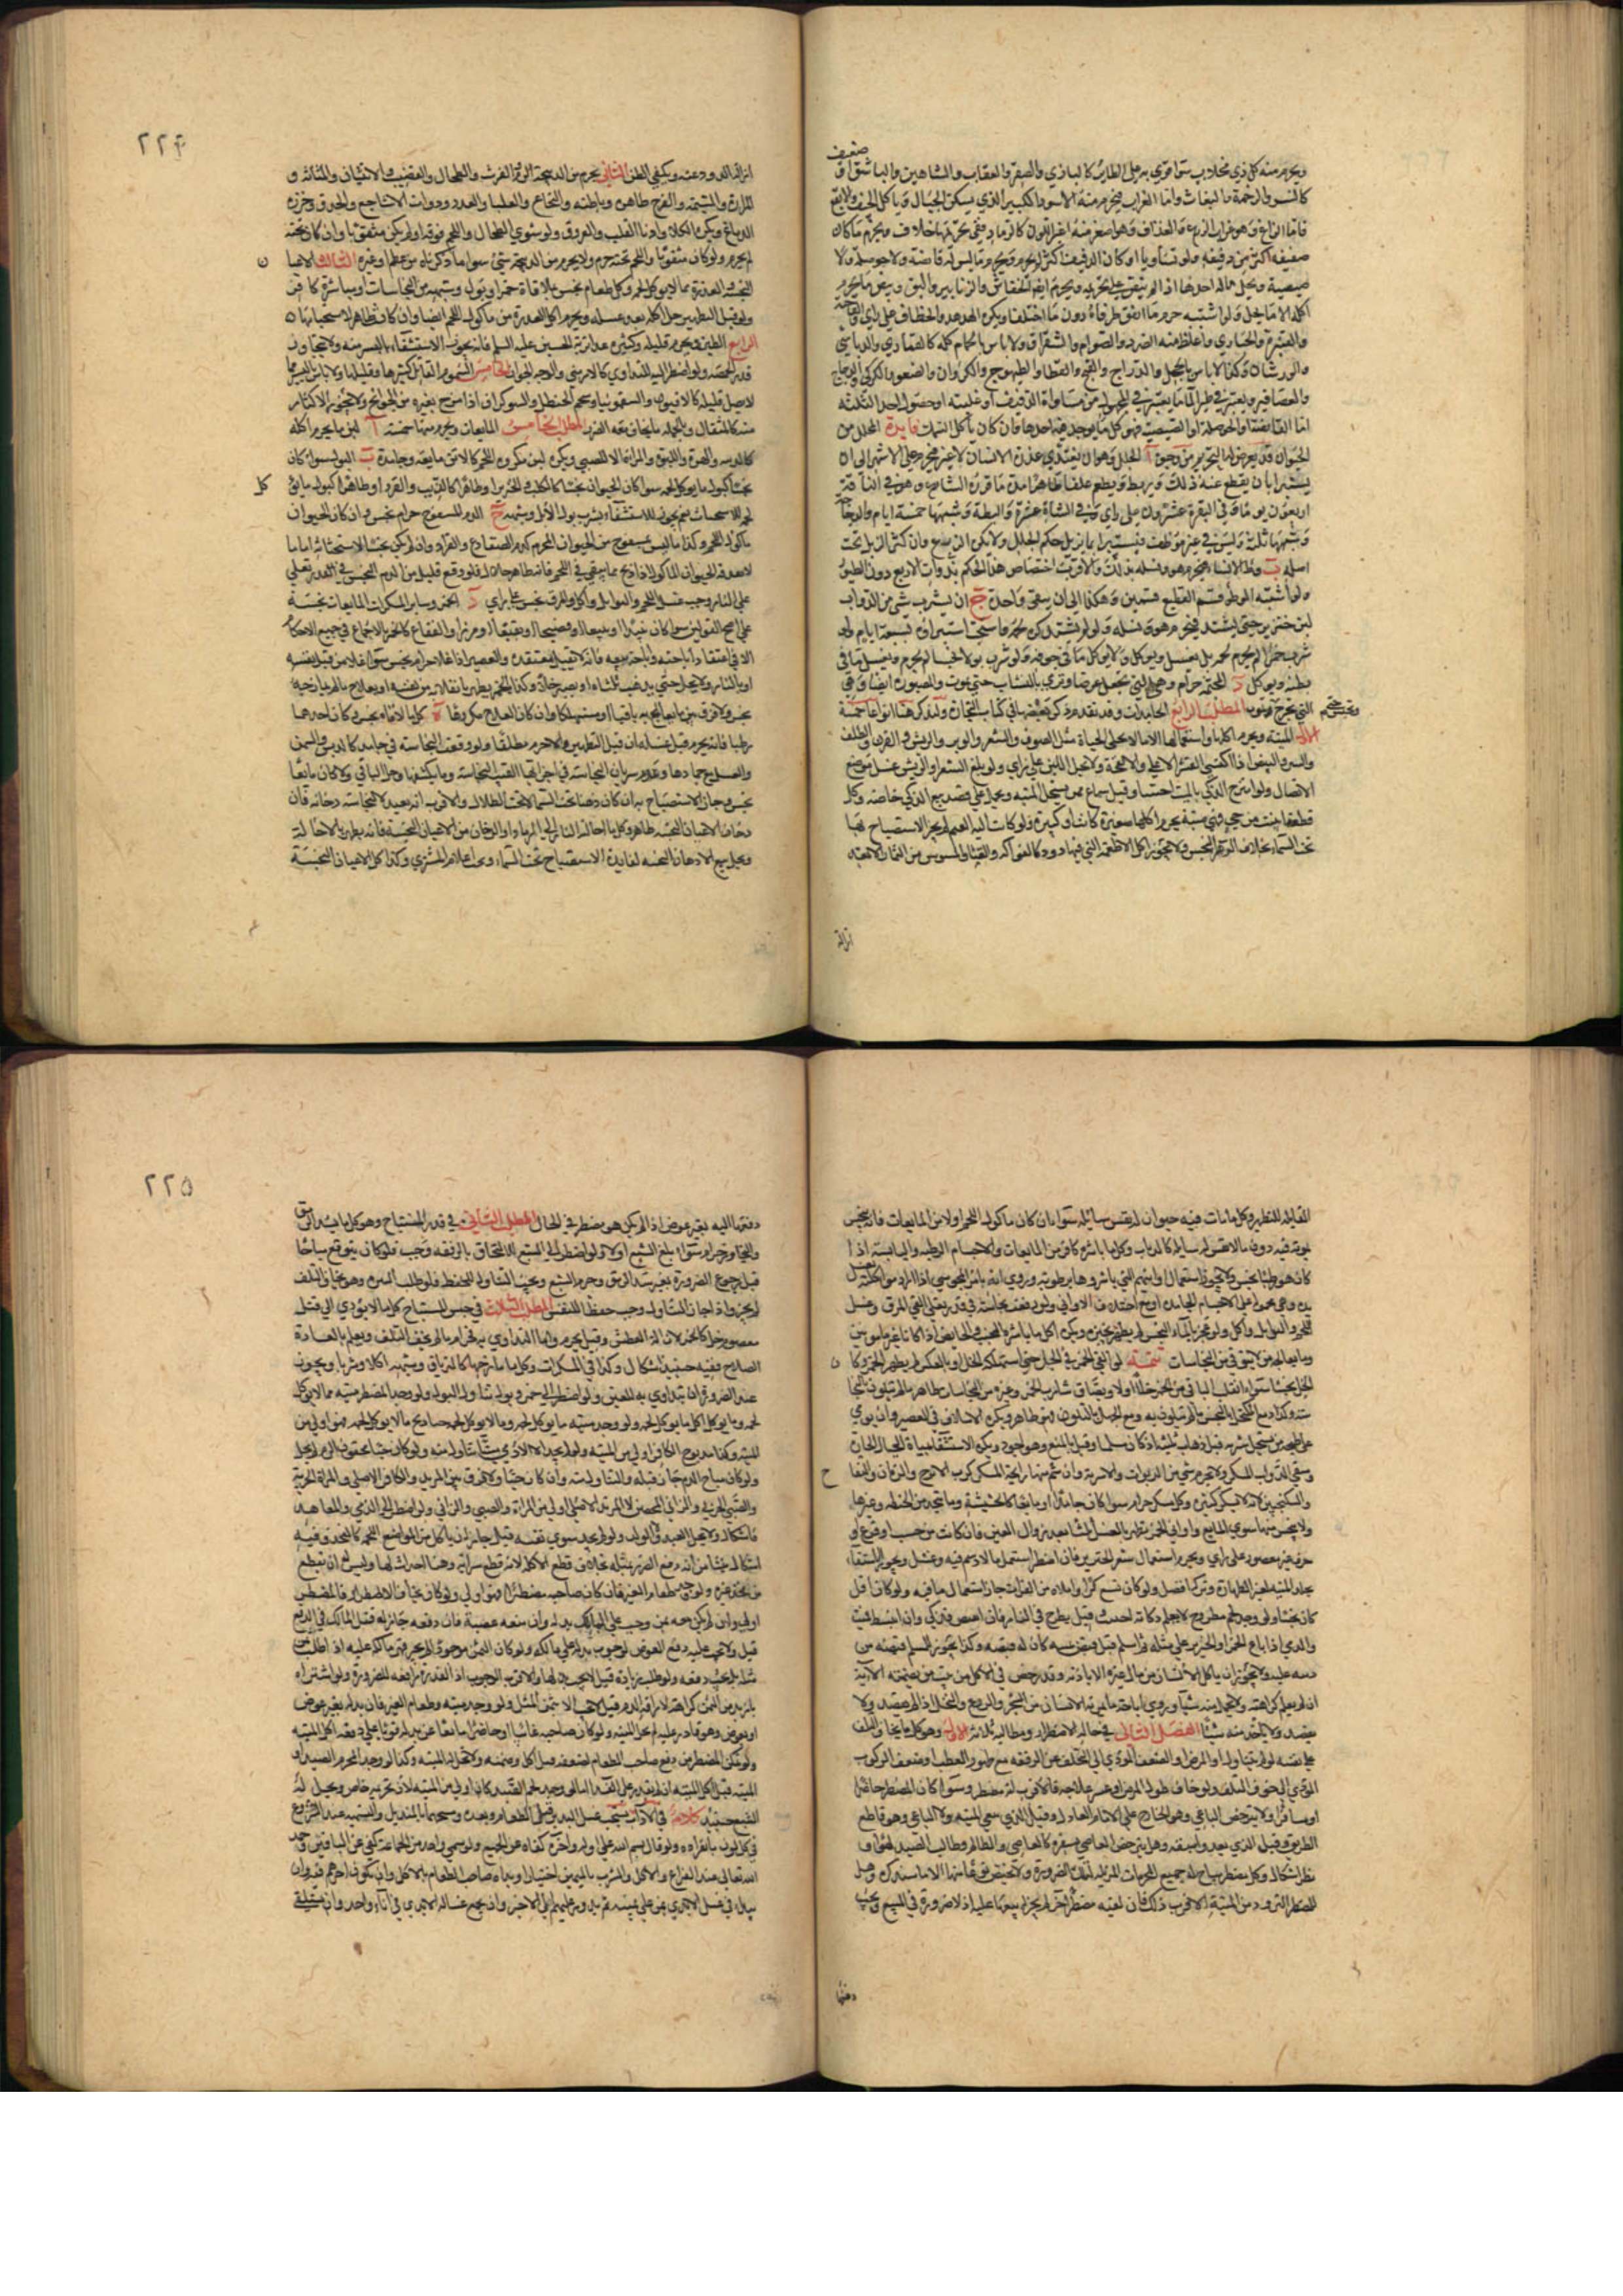 ويحرم منه كل ذي مخلاب سوا قوي به على الطاير كالبازي والصقر والعقاب والشاهين والباشق او ضعيف
كالنسر والرخمة والبغاث واما الغراب فيحرم منه الاسود الكبير الذي يسكن الجبال وياكل الجيف والابقع
فاما الزاغ وهو غراب الزرع والغداف وهو اصغر منه اغبر اللون كالرماد ففي تحريمها خلاف ويحرم ما كان
صفيفه اكثر من دفيفه ولو تساويا او كان الدفيف اكثر لم يحرم ويحرم ما ليس له قانصة ولا حوصلة ولا
صيصية ويحل ماله احدها اذا لم ينص على تحريمه ويحرم ايضا الخفاش والزنابير والبق وبيض ما يحرم
اكله اما ما يحل ولو اشتبه حرم ما اتفق طرفاه دون ما اختلف ويكره الهدهد والخطاف على راي والفاختة
والقبرة والحبارى واغلظ منه الصرد والصوام والشقراق ولا باس بالحمام كله كالقماري والدباسي
والورشان وكذا لا باس بالحجل والدراج والقبج والقطا والطيهوج والكروان والصعو والكركي والدجاج
والعصافير ويعتبر في طير الماء ما يعتبر في المجهول من مساواة الدفيف او غلبته او حصول احد الثلثة
اما القانصة او الحوصلة او الصيصية فهو كل ما يوجد فيه احدها فان كان ياكل السمك فايدة المحلل من
الحيوان قد يعرض له التحريم من وجوه آ الجلل وهو ان يغتذي عذرة الانسان لا غير فيحرم على الاشهر الى ان
يستبرا بان يقطع عنه ذلك ويربط ويطعم علفا طاهرا مدة ما قرره الشارع وهو في الناقة
اربعون يوما وفي البقرة عشرون على راي وفي الشاة عشرة والبطة وشبهها خمسة ايام والدجاجة
وشبهها ثلثة وليس في غيره موظف فيستبرا بما يزيل حكم الجلل ولا يكره الزرع وان كثر الزبل تحت
اصله ب وطؤ الانسان فيحرم هو ونسله بذلك والاقرب اختصاص هذا الحكم بذوات الاربع دون الطيور
ولو اشتبه الموطوء قسم القطيع قسمين وهكذا الى ان يبقى واحدة ج ان يشرب شي من الدواب
لبن خنزيرة حتى يشتد فيحرم هو ونسله ولو لم يشتد كره لحمه واستحب استبراؤه بسبعة ايام ولو
شرب خمرا لم يحرم لحمه بل يغسل ويوكل ولا يوكل ما في جوفه ولو شرب بولا نجسا لم يحرم ويغسل ما في
بطنه ويوكل د المجثمة حرام وهي التي تجعل غرضا وترمى بالنشاب حتى تموت والمصبورة ايضا وهي
التي تجرح وتحبس حتى تموت المطلب الرابع الجامدات وقد تقدم ذكر بعضها في كتاب التجارة ولنذكر هنا انواعا خمسة
الاول الميتة ويحرم اكلها واستعمالها الا ما لا تحله الحياة مثل الصوف والشعر والوبر والريش والقرن والظلف
والسن والبيض اذا اكتسى القشر الاعلى والانفحة ولا يحل اللبن على راي ولو قلع الشعر او الريش غسل موضع
الاتصال ولو امتزج الذكي بالميت اجتنبا وقيل يباع ممن يستحل الميتة ويحمل على قصد بيع الذكي خاصة وكل
قطعة ابينت من حي فهي ميتة يحرم اكلها صغيرة كانت او كبيرة ولو كانت الية الغنم لم يجز الاستصباح بها
تحت السماء بخلاف الدهن النجس ولا يجوز اكل الاطعمة التي فيها دود كالفواكه والقثا والمسوس من الثمار الا بعد
ازالة
٢٢٤
ازالة الدود عنه ويكفي الظن الثاني يحرم من الذبيحة الدم الفرث والطحال والقضيب والانثيان والمثانة و
المرارة والمشيمة والفرج ظاهره وباطنه والنخاع والعلباء والغدد وذوات الاشاجع والحدق وخرزة
الدماغ ويكره الكلا واذنا القلب والعروق ولو شوي الطحال واللحم فوقه او لم يكن مثقوبا وان كان تحته
لم يحرم ولو كان مثقوبا واللحم تحته حرم ولا يحرم من الذبيحة شي سوا ما ذكرناه من عظم او غيره الثالث الاعيا
النجسة العذرة مما لا يوكل لحمه وكل طعام نجس بملاقاة خمر او بول وشبهه من النجاسات او مباشرة كافر
ولو قبل التطهير حل اكله بعد غسله ويحرم اكل العذرة من ماكول اللحم ايضا وان كانت طاهرة لاستخباثها
الرابع الطين ويحرم قليله وكثيره عدا تربة الحسين عليه السلم فانه يجوز الاستشفاء باليسير منه ولا يتجاوز
قدر الحمصة ولو اضطر اليه للتداوي كالارمني فالوجه الجواز الخامس السموم القاتل كثيرها وقليلها ولا باس باليسير مما
لا يقتل قليله كالافيون والسقمونيا وشحم الحنظل والشوكران اذا مزج بغيره من الحوائج ولا يجوز الاكثار
منه كالمثقال وبالجملة ما يخاف معه الضرر المطلب الخامس المايعات ويحرم منها خمسة آ لبن ما يحرم اكله
كالذئبة والهرة واللبوة والمراة الا للصبي ويكره لبن مكروه اللحم كالاتن مايعه وجامده ب البول سوا كان
نجسا كبول ما لا يوكل لحمه سوا كان الحيوان نجسا كالكلب والخنزير او طاهرا كالذئب والقرد او طاهرا كبول ما يوكل
لحمه للاستخباث نعم يجوز للاستشفاء شرب بول الابل وشبهه ج الدم المسفوح حرام نجس وان كان الحيوان
ماكول اللحم وكذا ما ليس بمسفوح من الحيوان المحرم كدم الضفادع والقراد وان لم يكن نجسا لاستخباثه اما ما
لا يدفعه الحيوان الماكول اذا ذبح مما يبقى في اللحم فانه طاهر حلال ولو وقع قليل من الدم النجس في القدر تغلي
على النار وجب غسل اللحم والتوابل واكل والمرق نجس على راي د الخمر وساير المسكرات المايعات نجسة
على اصح القولين سوا كان نبيذا او بتعا او فضيخا او نقيعا او مزرا والفقاع كالخمر بالاجماع في جميع الاحكام
الا في اعتقاد اباحته واباحة بيعه فانه لا يقتل معتقده والعصير اذا غلا حرام نجس سوا غلا من قبل نفسه
او بالنار ولا يحل حتى يذهب ثلثاه او يصير خلا وكذا الخمر يطهر بانقلابه من نفسه او بعلاج ما لم يمازجه
نجس ولا فرق بين ما يعالج به باقيا او مستهلكا وان كان العلاج مكروها ه كل ما لاقاه نجس وكان احدهما
رطبا فانه يحرم قبل غسله ان قبل التطهير والا حرم مطلقا ولو وقعت النجاسة في جامد كالدبس والسمن
والعسل مع جمادها وعدم سريان النجاسة في اجزائها القيت النجاسة وما يكتنفها وحل الباقي ولو كان مايعا
نجس وجاز الاستصباح به ان كان دهنا تحت السماء لا تحت الظلال والاقرب انه تعبد لا لنجاسة دخانه فان
دخان الاعيان النجسة طاهر وكل ما احالته النار الى الرماد او الدخان من الاعيان النجسة فانه يطهر بالاحالة
ويحل بيع الادهان النجسة لفايدة الاستصباح تحت السماء ويجب اعلام المشتري وكذا كل الاعيان النجسة
القابلة للتطهير وكل ما مات فيه حيوان له نفس سايلة سوا كان ماكول اللحم او لا من المايعات فانه ينجس
بموته فيه دون ما لا نفس له سايلة كالذباب وكل ما باشره كافر من المايعات والاجسام الرطبة واليابسة اذا
كان هو رطبا نجس ولا يجوز استعمال اوانيهم التي باشروها برطوبة وروي انه يامر المجوسي اذا اراد مواكلته بغسل
يده وهي محمولة على الاجسام الجامدة او مع اختلاف الاواني ولو وقعت نجاسة في قدر يغلي القي المرق وغسل
اللحم والتوابل واكل ولو عجن بالماء النجس لم يطهر بخبزه ويكره اكل ما باشره الجنب والحايض اذا كانا غير مامونين
وما يعالجه من لا يتوقى من النجاسات تتمة لو القي الخمر في الخل حتى استهلكه الخل او بالعكس لم يطهر الخمر وكان
الخل نجسا سواء انقلب الباقي من الخمر خلا او لا وبصاق شارب الخمر وغيره من النجاسات طاهر ما لم يتلون بالنجا
سة وكذا دمع المكتحل بالنجس ما لم يتلون به ومع الجهل بالتلون فهو طاهر ويكره الاسلاف في العصير وان يؤمن
على طبخه من يستحل شربه قبل ذهاب ثلثيه اذا كان مسلما وقيل بالمنع وهو اجود ويكره الاستشفا بمياة الجبال الحارة
وسقي الدواب المسكر ولا يحرم شي من الربوبات والاشربة وان شم منها رايحة المسكر كرب الاترج والرمان والتفا
ح والسكنجبين لانه لا يسكر كثيره وكل مسكر حرام سوا كان جامدا او مايعا كالحشيشة وما يتخذ من الحنطة وغيرها
ولا ينجس منها سوى المايع واواني الخمر تطهر بالغسل ثلثا بعد زوال العين فان كانت من خشب او قرع او
خزف غير مغضور على راي ويحرم استعمال شعر الخنزير فان اضطر استعمل ما لا دسم فيه وغسل ويجوز الاستقاء
بجلد الميتة لغير الطهارة وتركه افضل ولو كان تسع كرا واملاه من الفرات جاز استعمال ما فيه ولو كان اقل
كان نجسا ولو وجد لحم مطروح لا يعلم ذكاته اجتنب قيل يطرح في النار فان انقبض فذكي وان انبسط فميت
والذمي اذا باع الخمر او الخنزير على مثله ثم اسلم قبل قبض ثمنه كان له قبضه وكذا يجوز للمسلم قبضه من
دينه عليه ولا يجوز ان ياكل الانسان من مال غيره الا باذنه وقد رخص في الاكل من بيت من تضمنته الآية
ان لم يعلم كراهته ولا يحمل منه شيئا وروي اباحة ما يمر به الانسان من الشجر والزرع والنخل اذا لم يقصد ولا
يفسد ولا ياخذ منه شيئا الفصل الثاني في حالة الاضطرار ومطالبه ثلثة الاول وهو كل ما يخاف التلف
على نفسه لو لم يتناوله او المرض او الضعف المؤدي الى التخلف عن الرفقة مع ظهور العطب او ضعف الركوب
المؤدي الى خوف التلف ولو خاف طول المرض او عسر علاجه فالاقرب انه مضطر وسوا كان المضطر حاضرا
او مسافرا ولا يترخص الباغي وهو الخارج على الامام العادل وقيل الذي يبغي الميتة ولا العادي وهو قاطع
الطريق وقيل الذي يعدو شبعه وهل يترخص العاصي بسفره كالعاصي والظالم وطالب الصيد لهوا
نظر اشكال وكل مضطر يباح له جميع المحرمات المزيلة لتلك الضرورة ولا يختص نوعا منها الا ما سنذكره وهل
للمضطر التزود من الميتة الاقرب ذلك فان لقيه مضطر آخر لم يجز له بيعها عليه اذ لا ضرورة في البيع ويجب
دفعها
٢٢٥
دفعها اليه بغير عوض اذا لم يكن هو مضطرا في الحال المطلب الثاني في قدر المستباح وهو كل ما يسد الرمق
والتجاوز حرام سواء بلغ الشبع او لا ولو اضطر الى الشبع للالتحاق بالرفقة وجب فلو كان يتوقع مباحا
قبل رجوع الضرورة تعين سد الرمق وحرم الشبع ويجب التناول للحفظ فلو طلب التنزه وهو يخاف التلف
لم يجز واذا جاز التناول وجب حفظا للنفس المطلب الثالث في جنس المستباح كل ما لا يؤدي الى قتل
معصوم حل كالخمر لازالة العطش وقيل يحرم واما التداوي به فحرام ما لم يخف التلف ويعلم بالعادة
الصلاح ففيه حينئذ اشكال وكذا في المسكرات وكل ما مازجها كالترياق وشبهه اكلا وشربا ويجوز
عند الضرورة ان يتداوى به للعين ولو اضطر الى خمر وبول تناول البول ولو وجد المضطر ميتة مما لا يوكل
لحمه وما يوكل اكل ما يوكل لحمه ولو وجد ميتة ما يوكل لحمه وما لا يوكل لحمه حيا ذبح ما لا يوكل لحمه فهو اولى من
الميتة وكذا مذبوح الكافر اولى من الميتة ولو لم يجد الا الآدمي ميتا تناول منه ولو كان حيا محقون الدم لم يحل
ولو كان مباح الدم جاز قبله والتناول منه وان كان حيا ولا فرق بين المرتد والكافر الاصلي والمراة الحربية
والصبي الحربي والزاني المحصن
فاشكال ولا يحل العبد ولا الولد ولو لم يجد سوى نفسه قيل جاز ان ياكل من المواضع اللحمة كالفخذ وفيه
اشكال ينشا من انه دفع الضرر بمثله بخلاف قطع الآكلة لانه قطع سراية وهنا احداث لها وليس له ان يقطع
من فخذ غيره ولو وجد طعام الغير فان كان صاحبه مضطرا فهو اولى ولو كان يخاف الاضطرار فالمضطر
اولى وان لم يكن معه ثمن وجب على المالك بذله وان منعه غصبه فان دفعه جاز له قتل المالك في الدفع
قيل ولا يجب عليه دفع العوض لوجوب بذله على مالكه ولو كان الثمن موجودا لم يجز قهر مالكه عليه اذا طلب ثمن
مثله بل يجب دفعه ولو طلب زيادة قيل لا يجب بذلها والاقرب الوجوب اذ القدرة رافعة للضرورة ولو اشتراه
بازيد من الثمن كراهة لاراقة الدم قيل لا يجب الا ثمن المثل ولو وجد ميتة وطعام الغير فان بذله بغير عوض
او بعوض وهو قادر عليه لم تحل الميتة ولو كان صاحبه غايبا او حاضرا مانعا عن بذله قويا على دفعه اكل الميتة
ولو تمكن المضطر من دفع صاحب الطعام لضعفه قيل اكل وضمنه ولا تحل له الميتة وكذا لو وجد المحرم الصيد او
الميتة قيل اكل الميتة ان لم يقدر على الفداء اما لو وجد لحم الصيد كان اولى من الميتة لان تحريمه خاص ويحل له
الشبع حينئذ كلام في الآداب يستحب غسل اليد قبل الطعام وبعده ومسحهما بالمنديل والتسمية عند الشروع
في كل لون بانفراده ولو قال بسم الله على اوله وآخره كفاه عن الجميع ولو سمى واحد من الجماعة كفى عن الباقين وحمد
الله تعالى عند الفراغ والاكل والشرب باليمين اختيارا وبداءة صاحب الطعام بالاكل وان يكون آخرهم فيه وان
يبدا في غسل الايدي بمن على يمينه ثم يدور عليهم الى الاخير وان يجمع غسالة الايدي في اناء واحد وان يستلقي